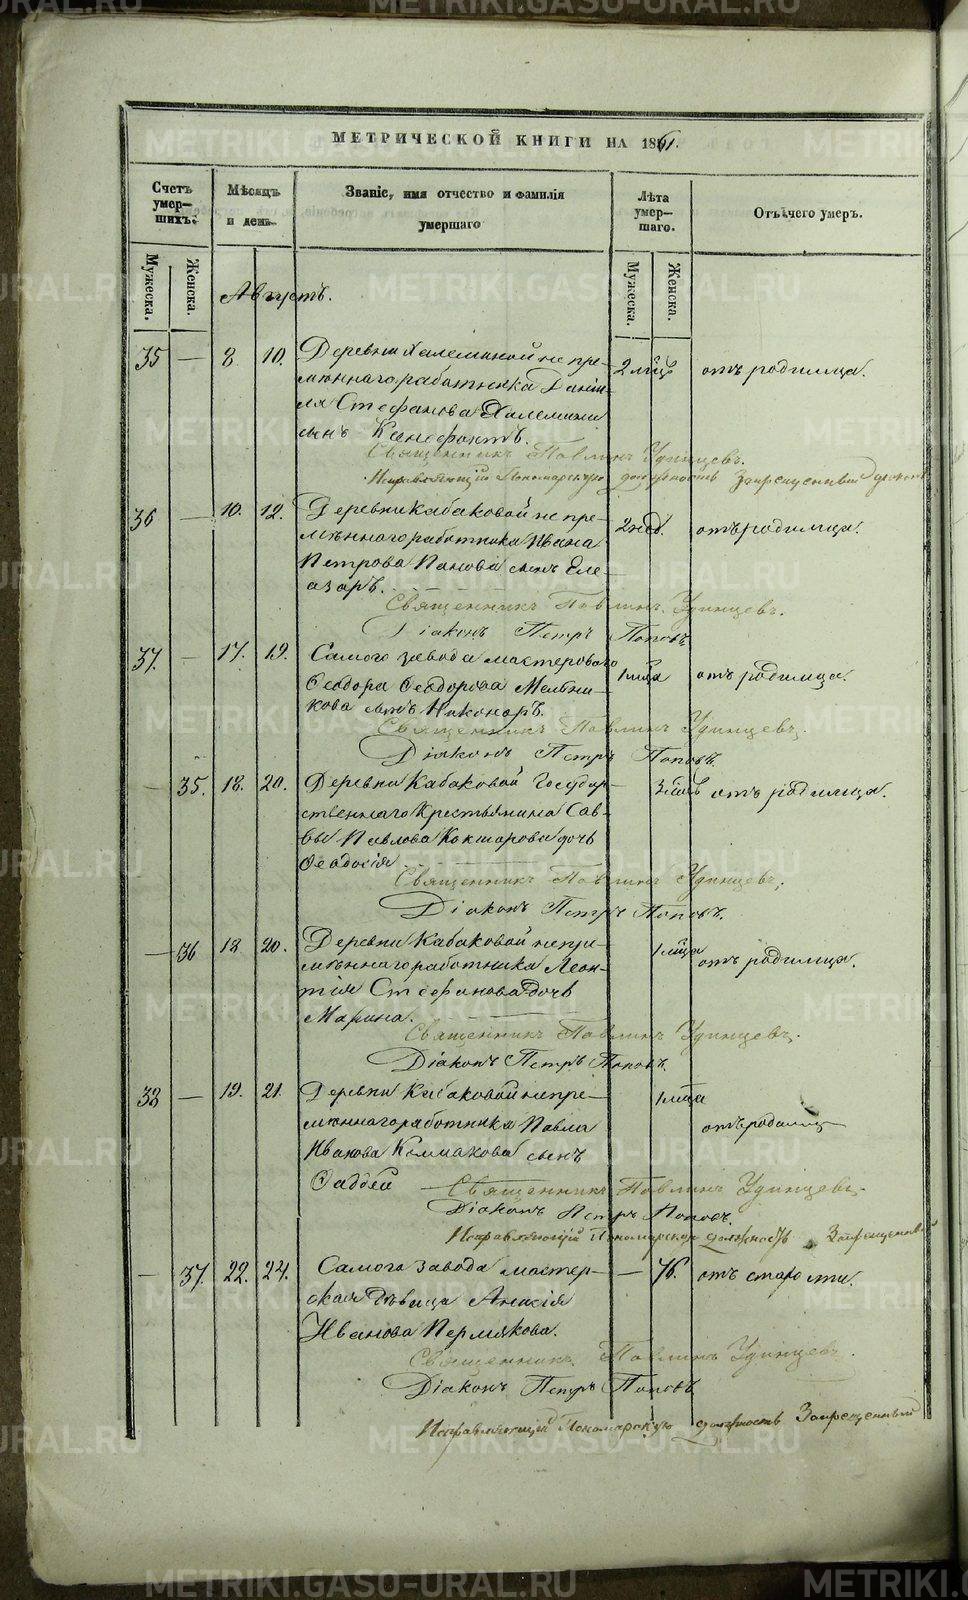 МЕТРИЧЕСКОЙ КНИГИ НА 1861.
Счетъ умер-шихъ.
Мѣсяцъ и день.
Званіе, имя отчество и фамилія умершаго
Лѣта умер-шаго.
Отъ чего умеръ.
Мужеска. Женска.
Мужеска. Женска.
Августъ.
35 — 8 10. Деревни Халеминой непре- 2 мѣс отъ родимца.
мѣннаго работника Дани-
ла Стефанова Халемина
сынъ
Священникъ Павлинъ Удинцевъ.
Исправляющій Пономарскую должность Запрещенный
36 — 10. 12. Деревни Кабаковой непре- 2 нед. отъ родимца.
мѣннаго работника Ивана
Петрова Панова сынъ Еле-
азаръ.
Священникъ Павлинъ Удинцевъ.
Діаконъ Петръ Поповъ
37. — 17. 19. Самого завода мастероваго 1 мѣца отъ родимца.
Ѳеодора Ѳеодорова Мельни-
кова сынъ Никоноръ.
Священникъ Павлинъ Удинцевъ.
Діаконъ Петръ Поповъ.
— 35. 18. 20. Деревни Кабаковой Государ- 3 мѣс отъ родимца.
ственнаго Крестьянина Сав-
вы Павлова Кокшарова дочь
Ѳеодосія
Священникъ Павлинъ Удинцевъ,
Діаконъ Петръ Поповъ.
— 36 18 20. Деревни Кабаковой непре- 1 мѣца отъ родимца.
мѣннаго работника Леон-
тія Стефанова дочь
Марина.
Священникъ Павлинъ Удинцевъ.
Діаконъ Петръ Поповъ.
38 — 19. 21. Деревни Кабаковой непре- 1 мѣца
мѣннаго работника Павла отъ родимц
Иванова Колмакова сынъ
Ѳаддей
Священникъ Павлинъ Удинцевъ.
Діаконъ Петръ Поповъ.
Исправляющій Пономарскую должность Запрещенный
— 37 22. 24. Самого завода мастер- — 76. отъ старости.
ская дѣвица Анисія
Иванова Пермякова.
Священникъ Павлинъ Удинцевъ.
Діаконъ Петръ Поповъ
Исправляющій Пономарскую должность Запрещенный
METRIKI.GASO-URAL.RU